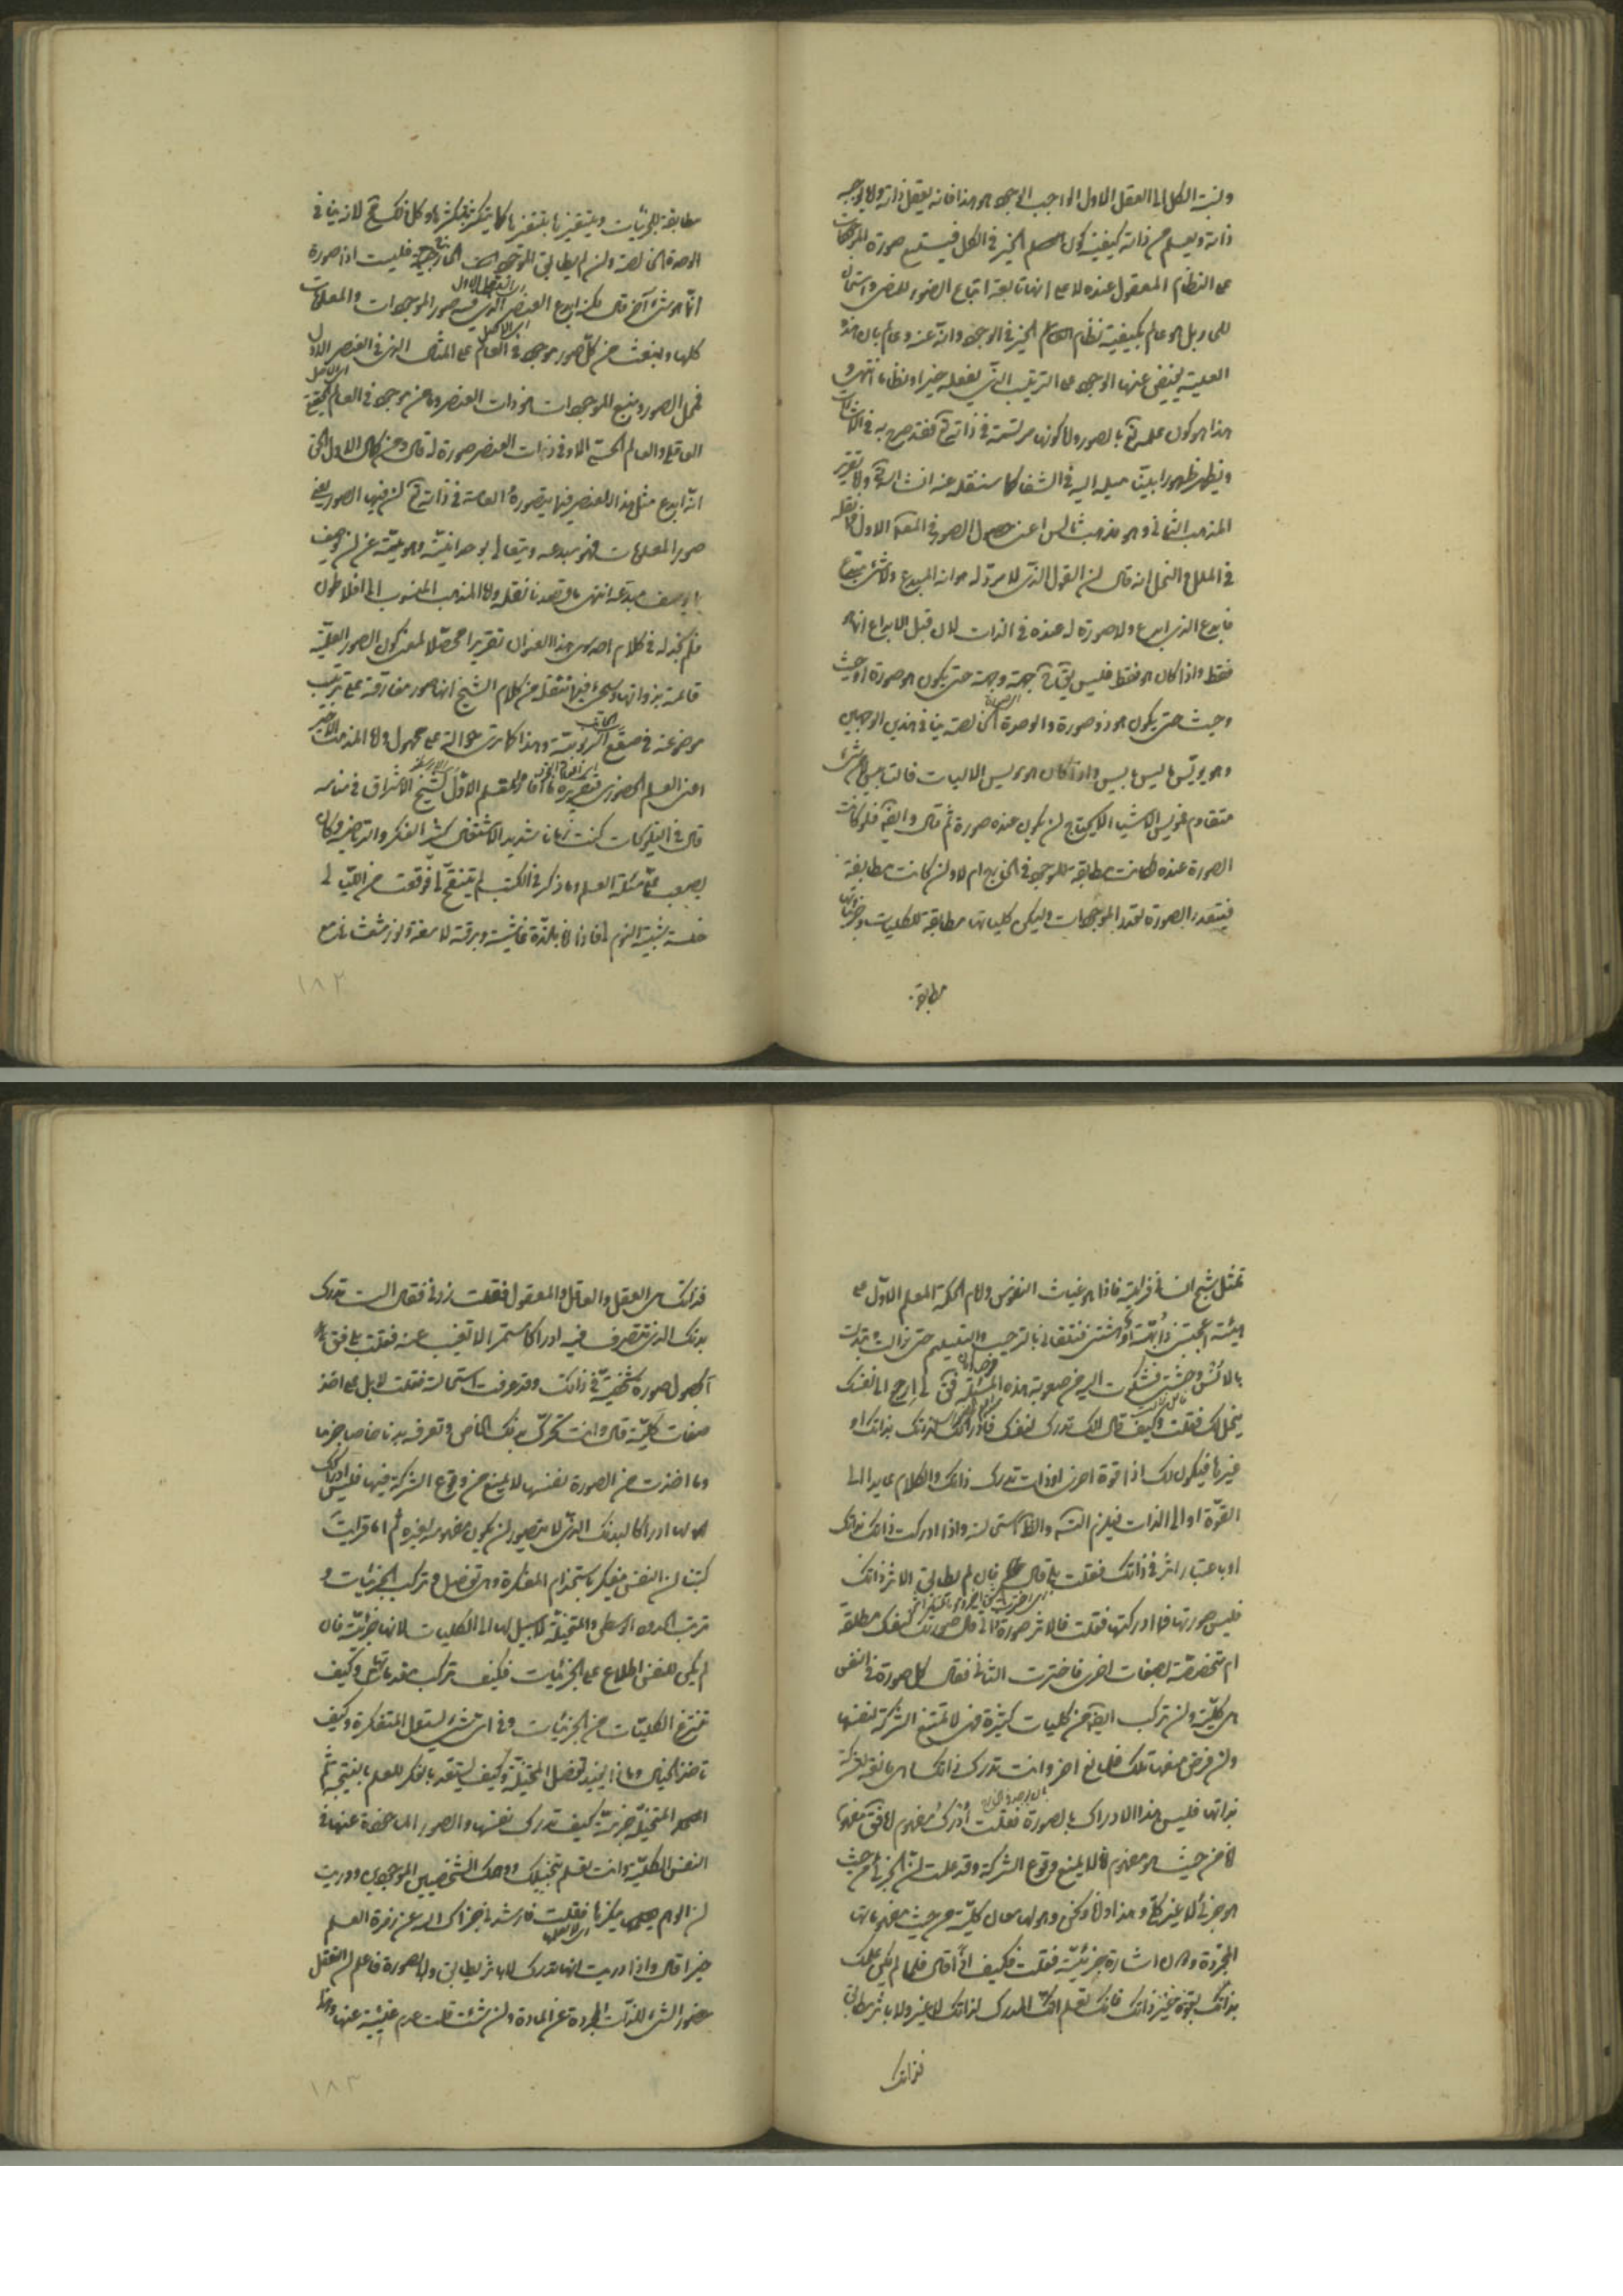 ونسبة الكل الى العقل الاول الواجب الوجود هو هذا فانه يعقل ذاته وما يوجبه
ذاته ويعلم من ذاته كيفية كون الخير في الكل فيتبع صورة الموجودات
على النظام المعقول عنده لا على انها تابعة اتباع الضوء للمضي والسخان
للحار بل هو عالم بكيفية نظام الخير في الوجود وانه عنه وعالم بان هذه
العلية يفيض عنها الوجود على الترتيب الذي يعقله خيرا ونظاما انتهى و
هذا هو كون علمه تع بالصور واما كونها مرتسمة في ذاته تع فقد صرح به في الاشارات
ويظهر ظهورا بينا ميله اليه في الشفا كما سننقله عنه انشاء الله تع واما تقرير
المذهب الثاني وهو مذهب ثالس اعنى حصول الصور في المعلول الاول فما نقله
في الملل والنحل انه قال ان القول الذي لا مرد له هو انه المبدع ولا شئ مبدع
فابدع الذي ابدع ولا صورة له عنده في الذات لان قبل الابداع انما هو
فقط واذا كان هو فقط فليس يقال ح جهة وجهة حتى يكون هو وصورة او حيث
وحيث حتى يكون هو ذو صورة والوحدة الخالصة ينافي هذين الوجهين
وهو يويس ما ليس بايس واذا كان هو مويس الايسات فالتاييس لا من شئ
متقادم فمويس الاشيا لا يحتاج ان يكون عنده صورة ثم قال وايضا فلو كانت
الصورة عنده اكانت مطابقة للموجود في الخارج ام لا وان كانت مطابقة
فيتعدد الصورة بعدد الموجودات وليكن كلياتها مطابقة للكليات وجزئياتها
مطابقة
مطابقة للجزئيات ويتغير بتغيرها كما يتكثر بتكثرها وكل ذلك مح لانه ينافي
الوحدة الخالصة وان لم يطابق الموجودات الخارجة فليست اذا صورة
انما هو شئ آخر قال لكنه ابدع العنصر الذي فيه صور الموجودات والمعلومات
كلها وينبعث من كل صورة موجود في العالم على المثال الذي في العنصر الاول
فمحل الصور ومنبع الموجودات هو ذات العنصر وما من موجود في العالم
العقلي والعالم الحسي الا وفي ذات العنصر صورة له قال ومن كمال الاول الحق
انه ابدع مثل هذا العنصر فيما يتصوره العامة في ذاته تع ان فيها الصور يعني
صور المعلومات فهو مبدعه ويتعالى بوحدانيته وهويته عن ان يوصف
بما يوصف به مبدعه انتهى ما قصدنا نقله واما المذهب المنسوب الى افلاطون
فلم نجد له في كلام احد سوى هذا العنوان تقريرا محصلا لمعنى كون الصور العلمية
قائمة بذواتها وسيجئ فيما ننقله من كلام الشيخ انها صور مفارقة على ترتيب
موضوعة في صقع الربوبية وهذا كما ترى حوالة على مجهول واما المذهب الاخير
اعنى العلم الحضوري فتقريره ما افاده المعلم الاول لشيخ الاشراق في منامه
قال في التلويحات كنت زمانا شديد الاشتغال كثير الفكر والرياضة وكان
يصعب على مسئلة العلم وما ذكر في الكتب لم يتنقح لي فوقعت من الليالي
خلسة شبيه النوم لي فاذا انا بلذة غاشية وبرقة لامعة ونور شعشاني مع
١٨٢
تمثل شبح انساني فرايته فاذا هو غياث النفوس وامام الحكمة المعلم الاول على
هيئة اعجبتني وابهة ادهشتني فتلقاني بالترحيب والتسليم حتى زالت دهشتي وتبدلت
بالانس وحشتي فشكوت اليه من صعوبة هذه المسئلة فقال لي ارجع الى نفسك
ينحل لك فقلت وكيف قال انك تدرك لنفسك فادراكك لذاتك بذاتك او
غيرها فيكون لك اذا قوة اخرى او ذات تدرك ذاتك والكلام عايد الى
القوة او الى الذات فيلزم التسلسل والظاهر استحالته واذا ادركت ذاتك بذاتك
او باعتبار اثر في ذاتك فقلت بلى قال فان لم يطابق الاثر ذاتك
فليس صورتها فما ادركتها فقلت فالاثر صورة ذاتي قال صورتك لنفسك مطلقة
ام متخصصة بصفات اخرى فاخترت الثاني فقال كل صورة في النفس
هي كلية وان تركب ايضا من كليات كثيرة فهي لا تمنع الشركة لنفسها
وان فرض منعها تلك فلمانع اخر وانت تدرك ذاتك هي مانعة للشركة
بذاتها فليس هذا الادراك بالصورة فقلت ادرك مفهوم انا فقال مفهوم
انا من حيث هو مفهوم انا لا يمنع وقوع الشركة وقد علمت ان الجزئي من حيث
هو جزئي لا غير كلي وهذا وانا ونحن وهو لها معان كلية من حيث مفهوماتها
المجردة دون اشارة جزئية فقلت فكيف اذا قال فلما لم يكن علمك
بذاتك بقوة غير ذاتك فانك تعلم انك المدرك لذاتك لا غير ولا باثر مطابق
فذاتك
فذاتك هي العقل والعاقل والمعقول فقلت زدني فقال الست تدرك
بدنك الذي تتصرف فيه ادراكا مستمرا لا تغيب عنه فقلت بلى قال
الحصول صورة شخصية في ذاتك وقد عرفت استحالته فقلت لا بل على اخذ
صفات كلية قال وانت تحرك بدنك الخاص وتعرفه بدنا خاصا جزئيا
وما اخذت من الصورة نفسها لا يمنع من وقوع الشركة فيها فليس ادراكك
لها ادراكا لبدنك الذي لا يتصور ان يكون مفهومه لغيره ثم اما قرات
كتبنا ان النفس يتفكر باستخدام المفكرة وهي تفصل وتركب الجزئيات و
ترتب الحدود الوسطى والمتخيلة لا سبيل لها الى الكليات لانها جزئية فان
لم يكن للنفس اطلاع على الجزئيات فكيف تركب مقدماتها وكيف
تنتزع الكليات من الجزئيات وفي اي شئ يستعمل المتفكرة وكيف
تاخذ الخيال وما ذا يفيد تفصيل المتخيلة وكيف يستعد بالفكر للعلم بالنتيجة ثم
المتخيلة جزئية كيف تدرك نفسها والصور الماخوذة عنها في
النفس الكلية وانت تعلم بتخيلك ووهمك الشخصيين الموجودين ودريت
ان الوهم ينكرها فقلت فارشدني جزاك الله عن زمرة العلم
خيرا قال واذا دريت انها تدرك لا باثر يطابق ولا بصورة فاعلم ان التعقل
حضور الشئ للذات المجردة عن المادة وان شئت قلت عدم غيبته عنها وهذا
١٨٣